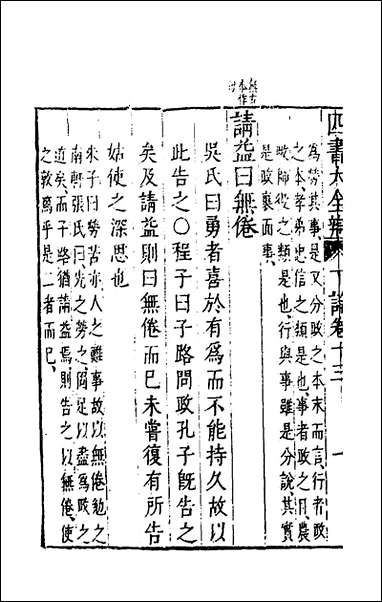 四書大全辯 下論卷十三 一
為勞其事是又分政之本末而言行者政
之本孝弟忠信之類是也事者政之目農
政師役之類是也行與事雖是分說其實
是政裏面事
無古本作毋
請益曰無倦
吳氏曰勇者喜於有為而不能持久故以
此告之○程子曰子路問政孔子既告之
矣及請益則曰無倦而已未嘗復有所告
姑使之深思也
朱子曰勞苦亦人之難事故以無倦勉之
南軒張氏曰先之勞之固足以盡為政之
道矣而子路猶請益焉則告之以無倦使
之敦篤乎是二者而已